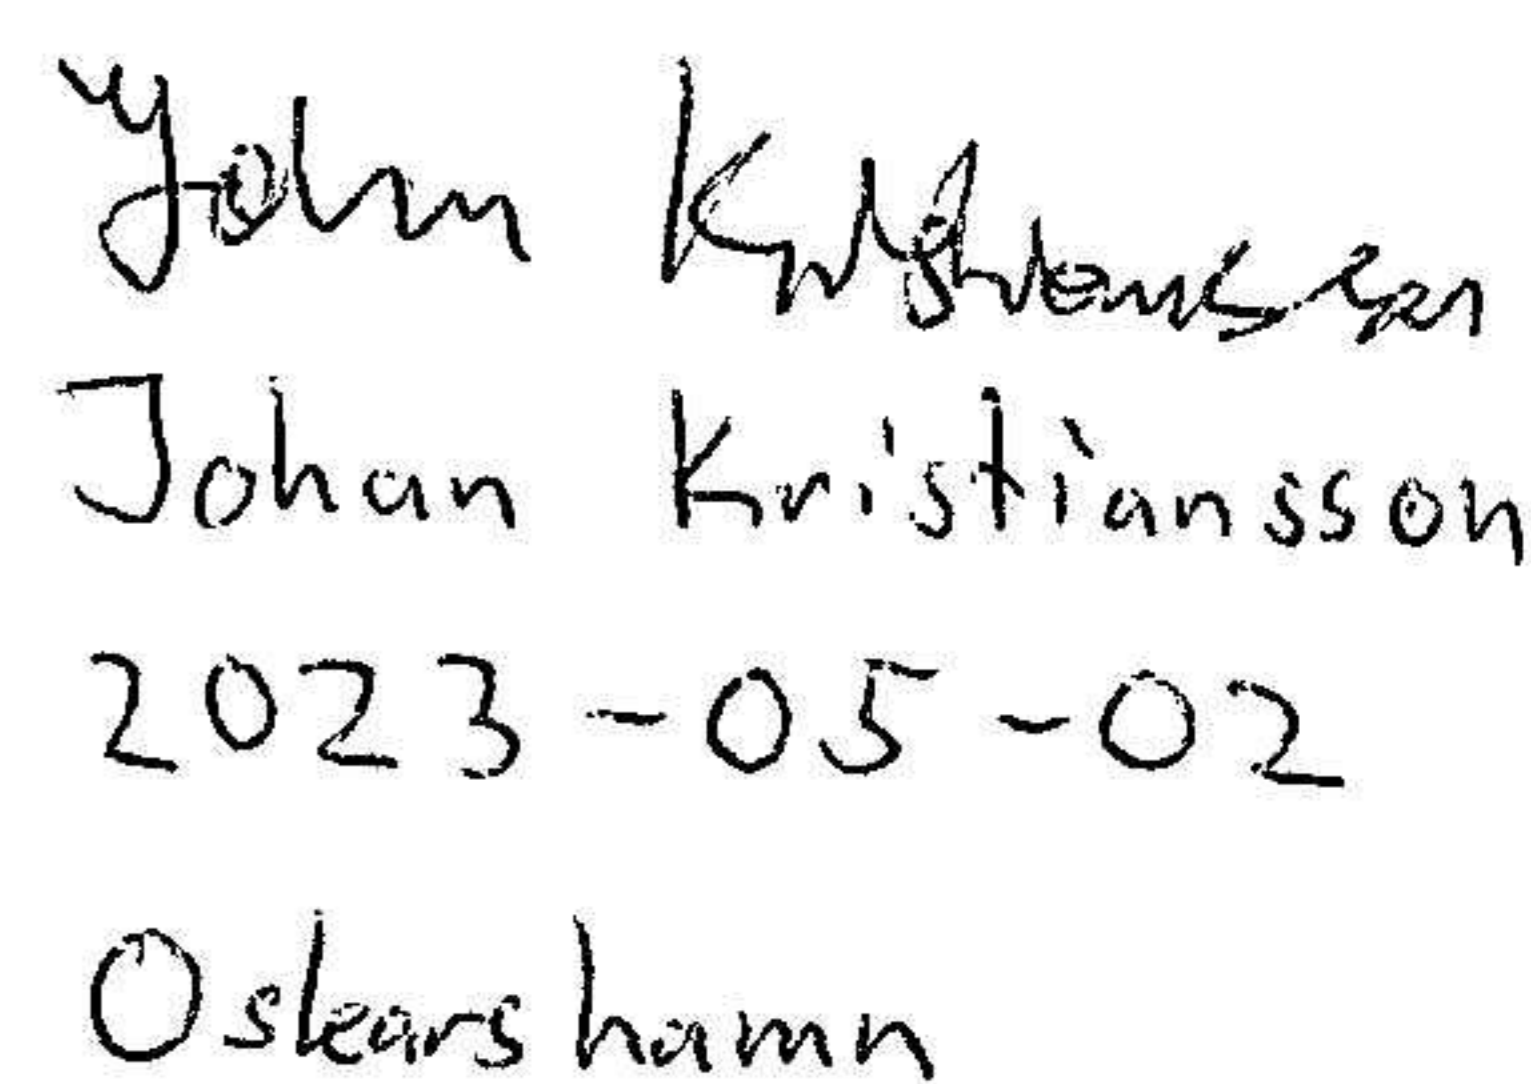 Johan Kristiansson
Johan Kristiansson
2023-05-02
Oskarshamn